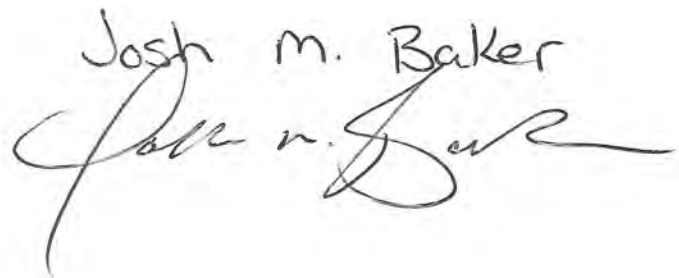 Josh M. Baker
Josh M. Baker